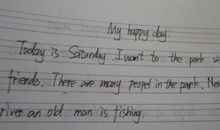 My happy day.
Today is Saturday. I want to the park w
friends. There are many peopel in the park. Nea
river an old man is fishing.